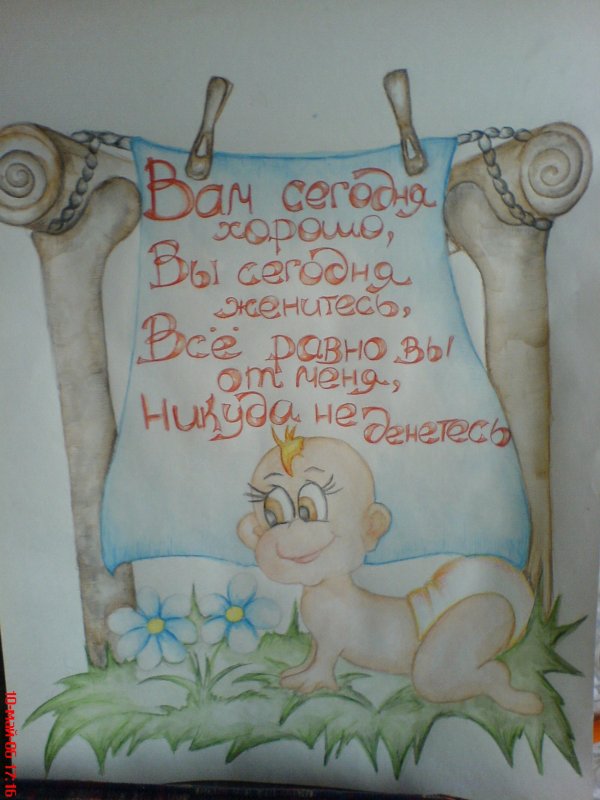 Вам сегодня
хорошо,
Вы сегодня
женитесь,
Всё равно вы
от меня,
Никуда не денетесь